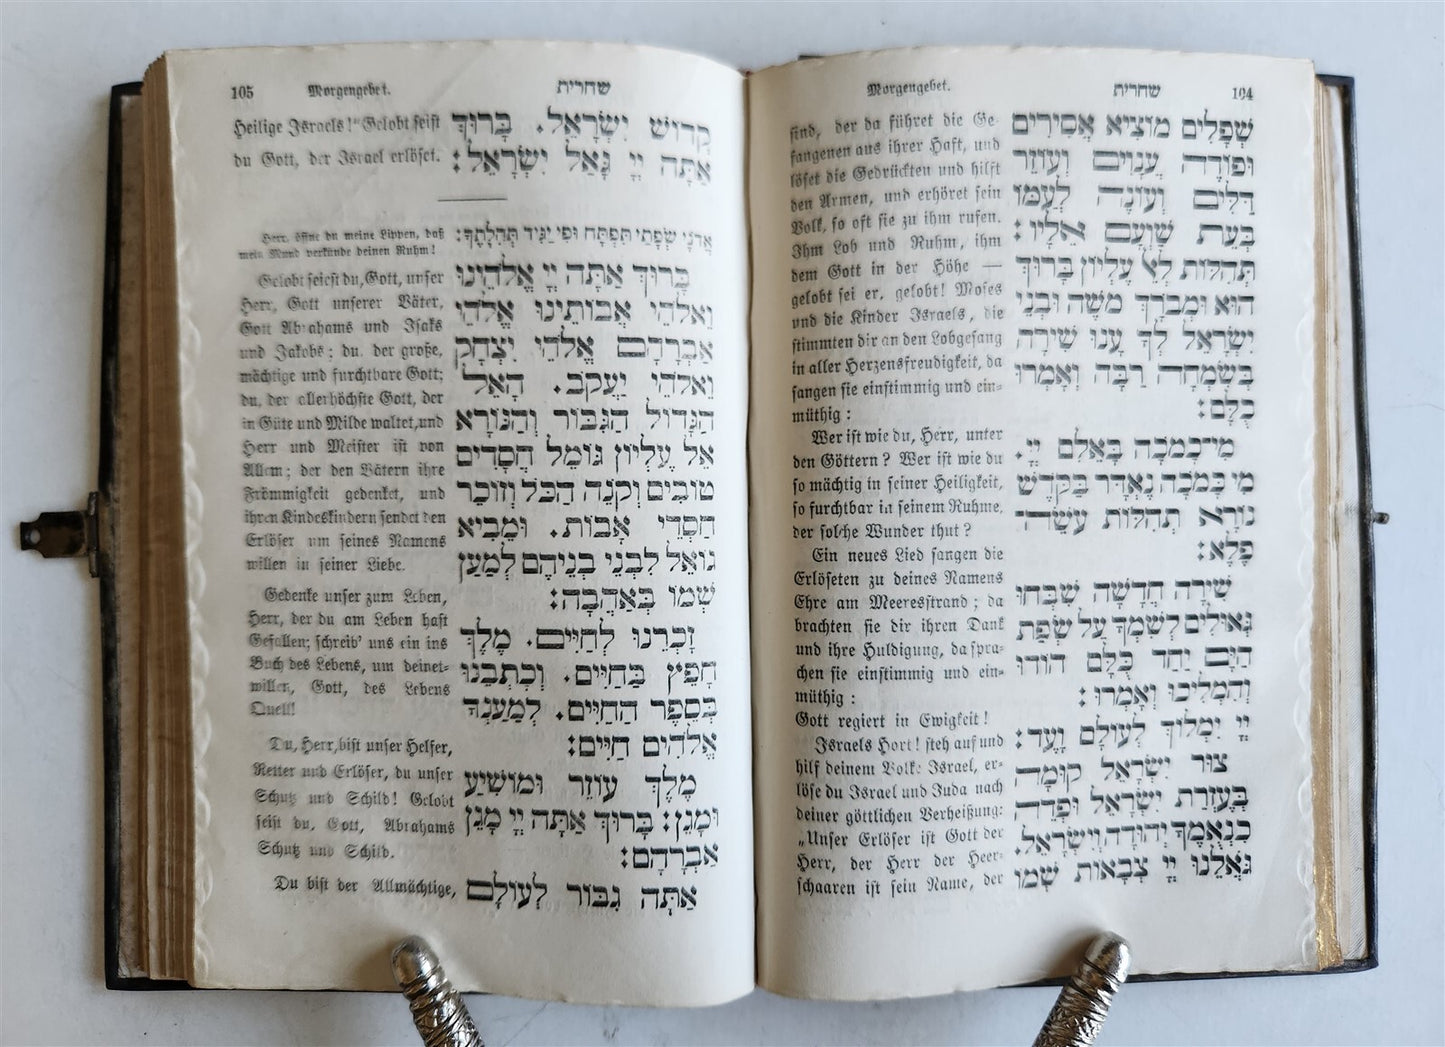 104 שחרית Morgengebet.
שְׁפָלִים מוֹצִיא אֲסִירִים
וּפוֹדֶה עֲנָוִים וְעוֹזֵר
דַּלִּים וְעוֹנֶה לְעַמּוֹ
בְּעֵת שַׁוְּעָם אֵלָיו׃
תְּהִלּוֹת לְאֵל עֶלְיוֹן בָּרוּךְ
הוּא וּמְבֹרָךְ מֹשֶׁה וּבְנֵי
יִשְׂרָאֵל לְךָ עָנוּ שִׁירָה
בְּשִׂמְחָה רַבָּה וְאָמְרוּ
כֻלָּם׃
מִי־כָמֹכָה בָּאֵלִם יְיָ.
מִי כָּמֹכָה נֶאְדָּר בַּקֹּדֶשׁ
נוֹרָא תְהִלּוֹת עֹשֵׂה־
פֶלֶא׃
שִׁירָה חֲדָשָׁה שִׁבְּחוּ
גְאוּלִים לְשִׁמְךָ עַל שְׂפַת
הַיָּם יַחַד כֻּלָּם הוֹדוּ
וְהִמְלִיכוּ וְאָמְרוּ׃
יְיָ יִמְלֹךְ לְעוֹלָם וָעֶד׃
צוּר יִשְׂרָאֵל קוּמָה
בְּעֶזְרַת יִשְׂרָאֵל וּפְדֵה
כִנְאֻמֶךָ יְהוּדָה וְיִשְׂרָאֵל.
גֹּאֲלֵנוּ יְיָ צְבָאוֹת שְׁמוֹ
sind, der da führet die Ge-
fangenen aus ihrer Haft, und
löset die Gedrückten und hilft
den Armen, und erhöret sein
Volk, so oft sie zu ihm rufen.
Ihm Lob und Ruhm, ihm
dem Gott in der Höhe —
gelobt sei er, gelobt! Moses
und die Kinder Israels, die
stimmten dir an den Lobgesang
in aller Herzensfreudigkeit, da
sangen sie einstimmig und ein-
müthig:
Wer ist wie du, Herr, unter
den Göttern? Wer ist wie du
so mächtig in seiner Heiligkeit,
so furchtbar in seinem Ruhme,
der solche Wunder thut?
Ein neues Lied sangen die
Erlöseten zu deines Namens
Ehre am Meeresstrand; da
brachten sie dir ihren Dank
und ihre Huldigung, da spra-
chen sie einstimmig und ein-
müthig:
Gott regiert in Ewigkeit!
Israels Hort! steh auf und
hilf deinem Volke Israel, er-
löse du Israel und Juda nach
deiner göttlichen Verheißung:
„Unser Erlöser ist Gott der
Herr, der Herr der Heer-
schaaren ist sein Name, der
שחרית Morgengebet. 105
קְדוֹשׁ יִשְׂרָאֵל. בָּרוּךְ
אַתָּה יְיָ גָּאַל יִשְׂרָאֵל׃
אֲדֹנָי שְׂפָתַי תִּפְתָּח וּפִי יַגִּיד תְּהִלָּתֶךָ׃
בָּרוּךְ אַתָּה יְיָ אֱלֹהֵינוּ
וֵאלֹהֵי אֲבוֹתֵינוּ אֱלֹהֵי
אַבְרָהָם אֱלֹהֵי יִצְחָק
וֵאלֹהֵי יַעֲקֹב. הָאֵל
הַגָּדוֹל הַגִּבּוֹר וְהַנּוֹרָא
אֵל עֶלְיוֹן גּוֹמֵל חֲסָדִים
טוֹבִים וְקֹנֵה הַכֹּל וְזוֹכֵר
חַסְדֵי אָבוֹת. וּמֵבִיא
גוֹאֵל לִבְנֵי בְנֵיהֶם לְמַעַן
שְׁמוֹ בְּאַהֲבָה׃
זָכְרֵנוּ לְחַיִּים. מֶלֶךְ
חָפֵץ בַּחַיִּים. וְכָתְבֵנוּ
בְּסֵפֶר הַחַיִּים. לְמַעַנְךָ
אֱלֹהִים חַיִּים׃
מֶלֶךְ עוֹזֵר וּמוֹשִׁיעַ
וּמָגֵן׃ בָּרוּךְ אַתָּה יְיָ מָגֵן
אַבְרָהָם׃
אַתָּה גִבּוֹר לְעוֹלָם
Heilige Israels!“ Gelobt seist
du Gott, der Israel erlöset.
Herr, öffne du meine Lippen, daß
mein Mund verkünde deinen Ruhm!
Gelobt seiest du, Gott, unser
Herr, Gott unserer Väter,
Gott Abrahams und Isaks
und Jakobs; du, der große,
mächtige und furchtbare Gott;
du, der allerhöchste Gott, der
in Güte und Milde waltet, und
Herr und Meister ist von
Allem; der den Vätern ihre
Frömmigkeit gedenket, und
ihren Kindeskindern sendet den
Erlöser um seines Namens
willen in seiner Liebe.
Gedenke unser zum Leben,
Herr, der du am Leben hast
Gefallen; schreib' uns ein ins
Buch des Lebens, um deinet-
willen, Gott, des Lebens
Quell!
Du, Herr, bist unser Helfer,
Retter und Erlöser, du unser
Schutz und Schild! Gelobt
seist du, Gott, Abrahams
Schutz und Schild.
Du bist der Allmächtige,